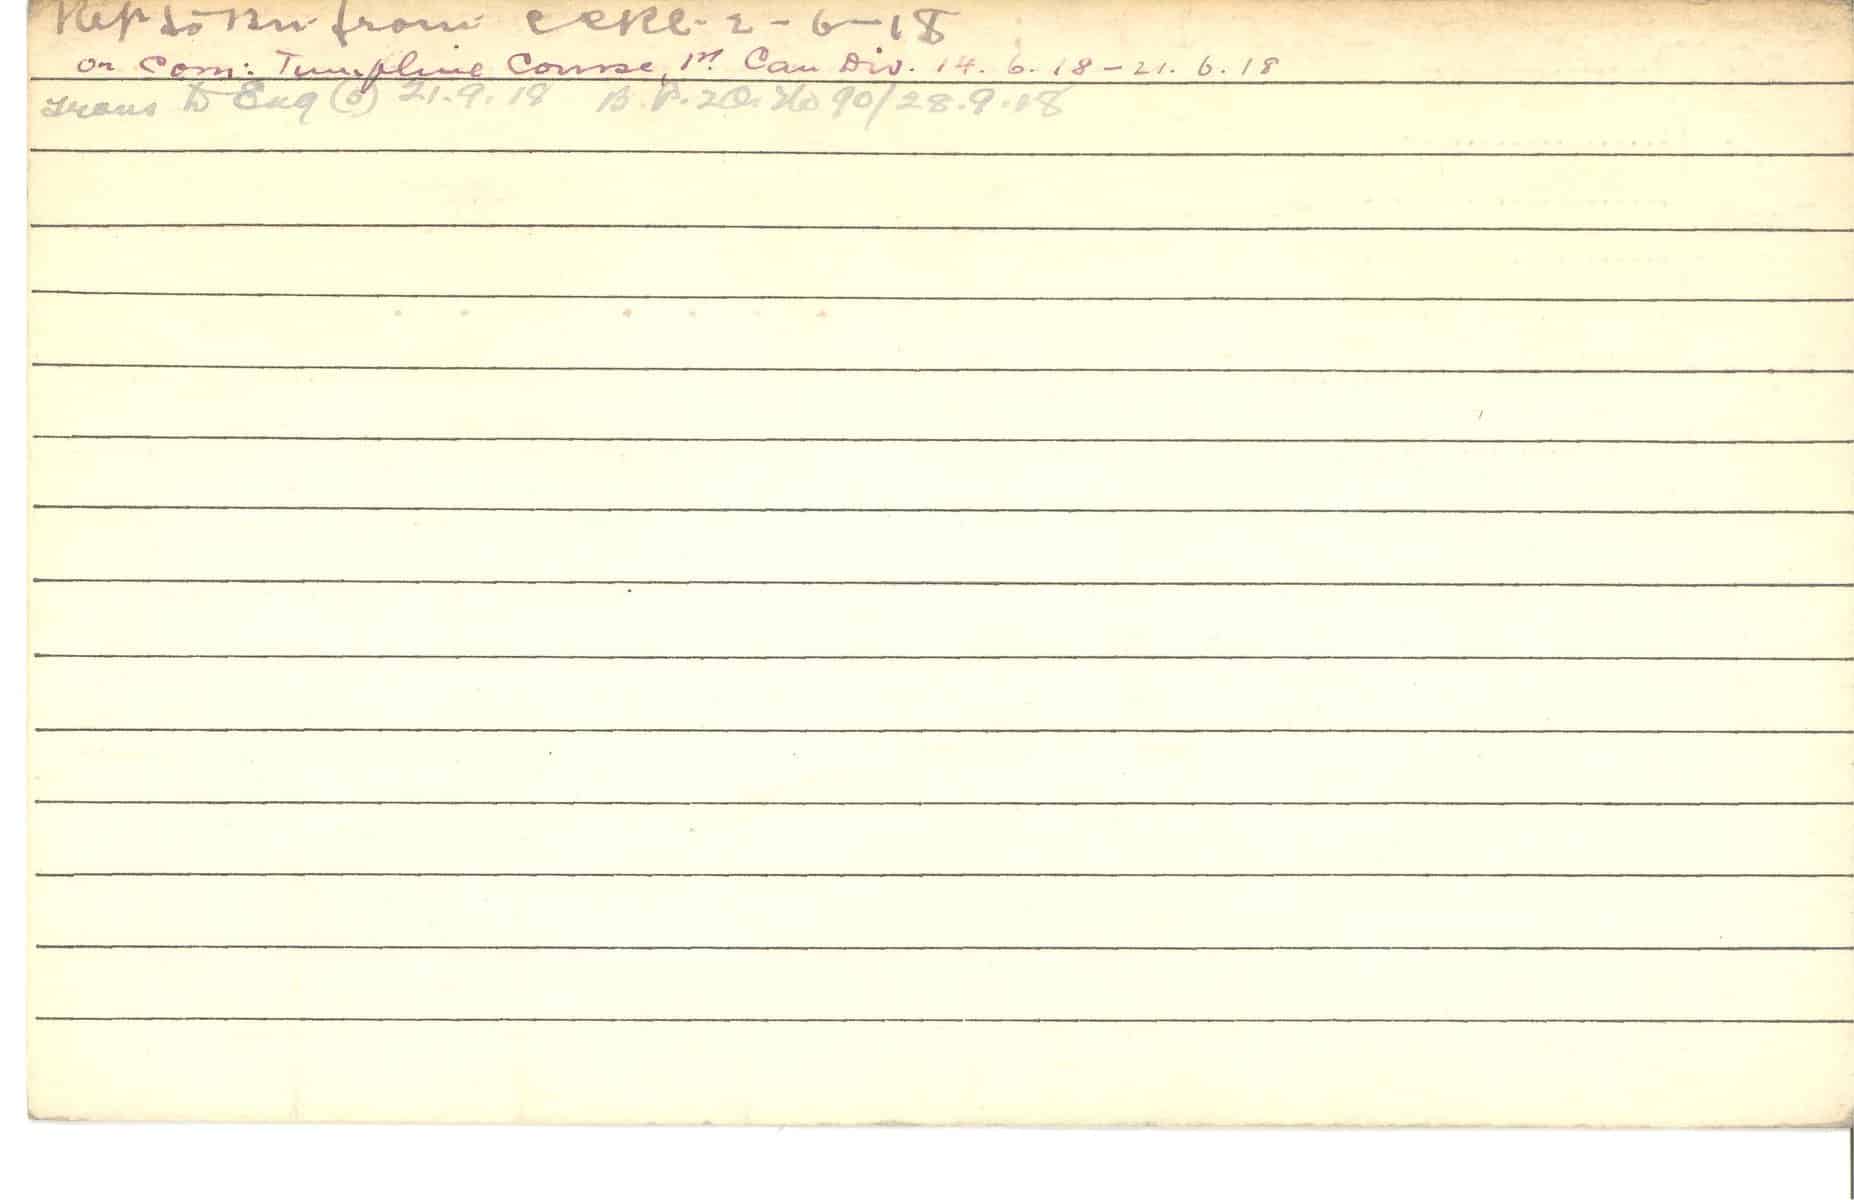 Rep to Bn from CCRC - 2 - 6 - 18
on com: Tumpline Course, 1st Can Div. 14. 6. 18 - 21. 6. 18
Trans to Eng (S) 21.9.18 B. P. 2 O. No 90/28.9.18